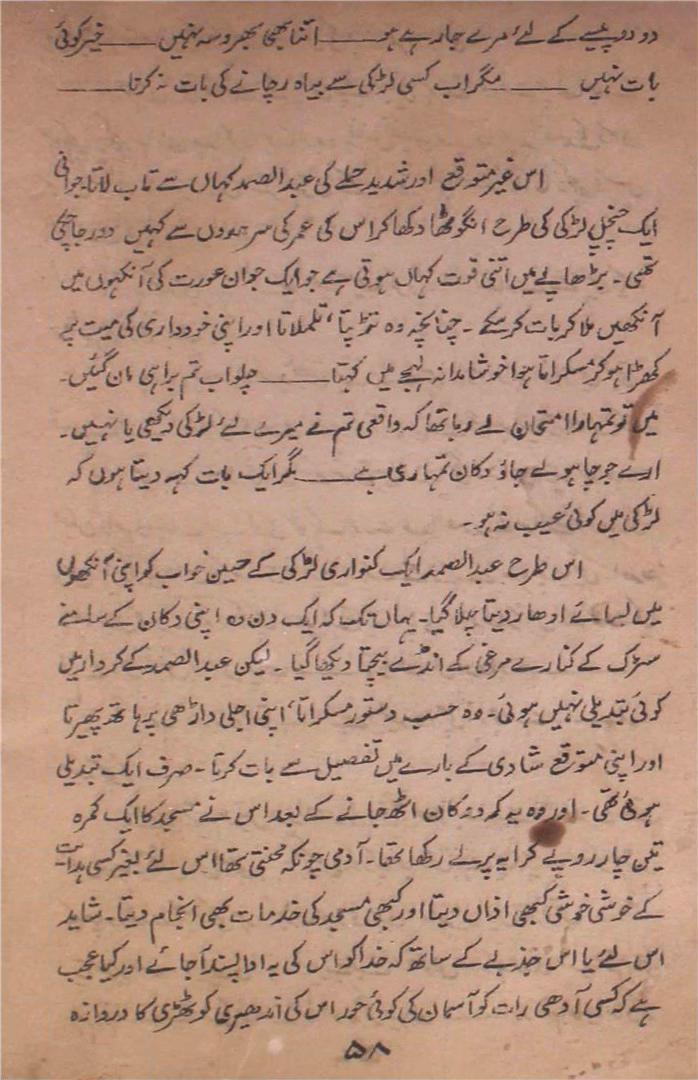 دو دو پیسے کے لئے مرے جا رہے ہو ــــــ اتنا بھی بھروسہ نہیں ــــــ خیر کوئی
بات نہیں ــــــ مگر اب کسی لڑکی سے بیاہ رچانے کی بات نہ کرنا ــــــ
اس غیر متوقع اور شدید حملے کی عبدالصمد کہاں سے تاب لاتا۔ جوانی
ایک چنچل لڑکی کی طرح انگوٹھا دکھا کر اس کی عمر کی سرحدوں سے کہیں دور جا چکی
تھی۔ بڑھاپے میں اتنی قوت کہاں ہوتی ہے جو ایک جوان عورت کی آنکھوں میں
آنکھیں ملا کر بات کر سکے۔ چنانچہ وہ تڑپتا، تلملاتا اور اپنی خودداری کی میت پر
کھڑا ہو کر مسکراتا ہوا خوشامدانہ لہجے میں کہتا ــــــ چلو اب تم برا ہی مان گئیں۔
میں تو تمہارا امتحان لے رہا تھا کہ واقعی تم نے میرے لئے لڑکی دیکھی یا نہیں۔
ارے جو چاہو لے جاؤ دکان تمہاری ہے ــــــ مگر ایک بات کہہ دیتا ہوں کہ
لڑکی میں کوئی عیب نہ ہو۔
اس طرح عبدالصمد ایک کنواری لڑکی کے حسین خواب کو اپنی آنکھوں
میں بسائے ادھار دیتا چلا گیا۔ یہاں تک کہ ایک دن وہ اپنی دکان کے سامنے
سڑک کے کنارے مرغی کے انڈے بیچتا دیکھا گیا۔ لیکن عبدالصمد کے کردار میں
کوئی تبدیلی نہیں ہوئی۔ وہ حسب دستور مسکراتا، اپنی اجلی داڑھی پر ہاتھ پھیرتا
اور اپنی متوقع شادی کے بارے میں تفصیل سے بات کرتا۔ صرف ایک تبدیلی
ہوئی تھی۔ اور وہ یہ کہ دکان اٹھ جانے کے بعد اس نے مسجد کا ایک کمرہ
تین چار روپے کرایہ پر لے رکھا تھا۔ آدمی چونکہ محنتی تھا اس لئے بغیر کسی ہدایت
کے خوشی خوشی کبھی اذاں دیتا اور کبھی مسجد کی خدمات بھی انجام دیتا۔ شاید
اس لئے یا اس جذبے کے ساتھ کہ خدا کو اس کی یہ ادا پسند آ جائے اور کیا عجب
ہے کہ کسی آدھی رات کو آسمان کی کوئی حور اس کی اندھیری کوٹھڑی کا دروازہ
۵۸